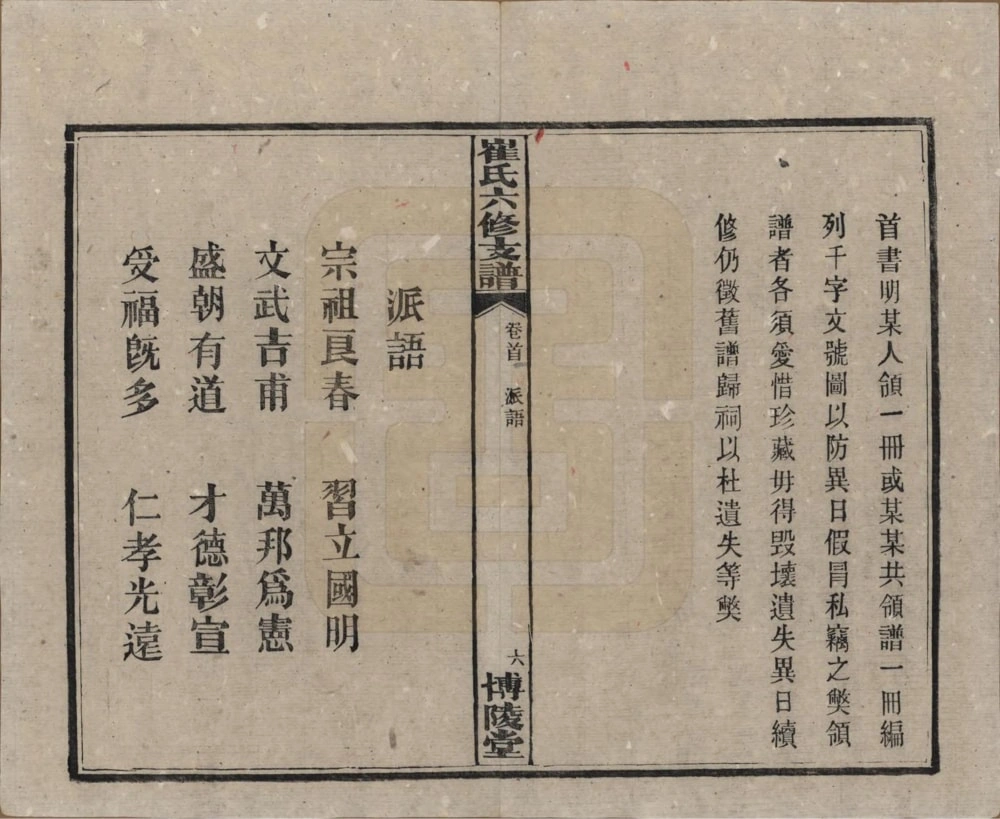 首書明某人領一冊或某某共領譜一冊編
列千字文號圖以防異日假冐私竊之獘領
譜者各須愛惜珍藏毋得毀壞遺失異日續
修仍徵舊譜歸祠以杜遺失等獘
崔氏六修支譜
卷首
派語
六
博陵堂
派語
宗祖良春 習立國明
文武吉甫 萬邦爲憲
盛朝有道 才德彰宣
受福旣多 仁孝光遠